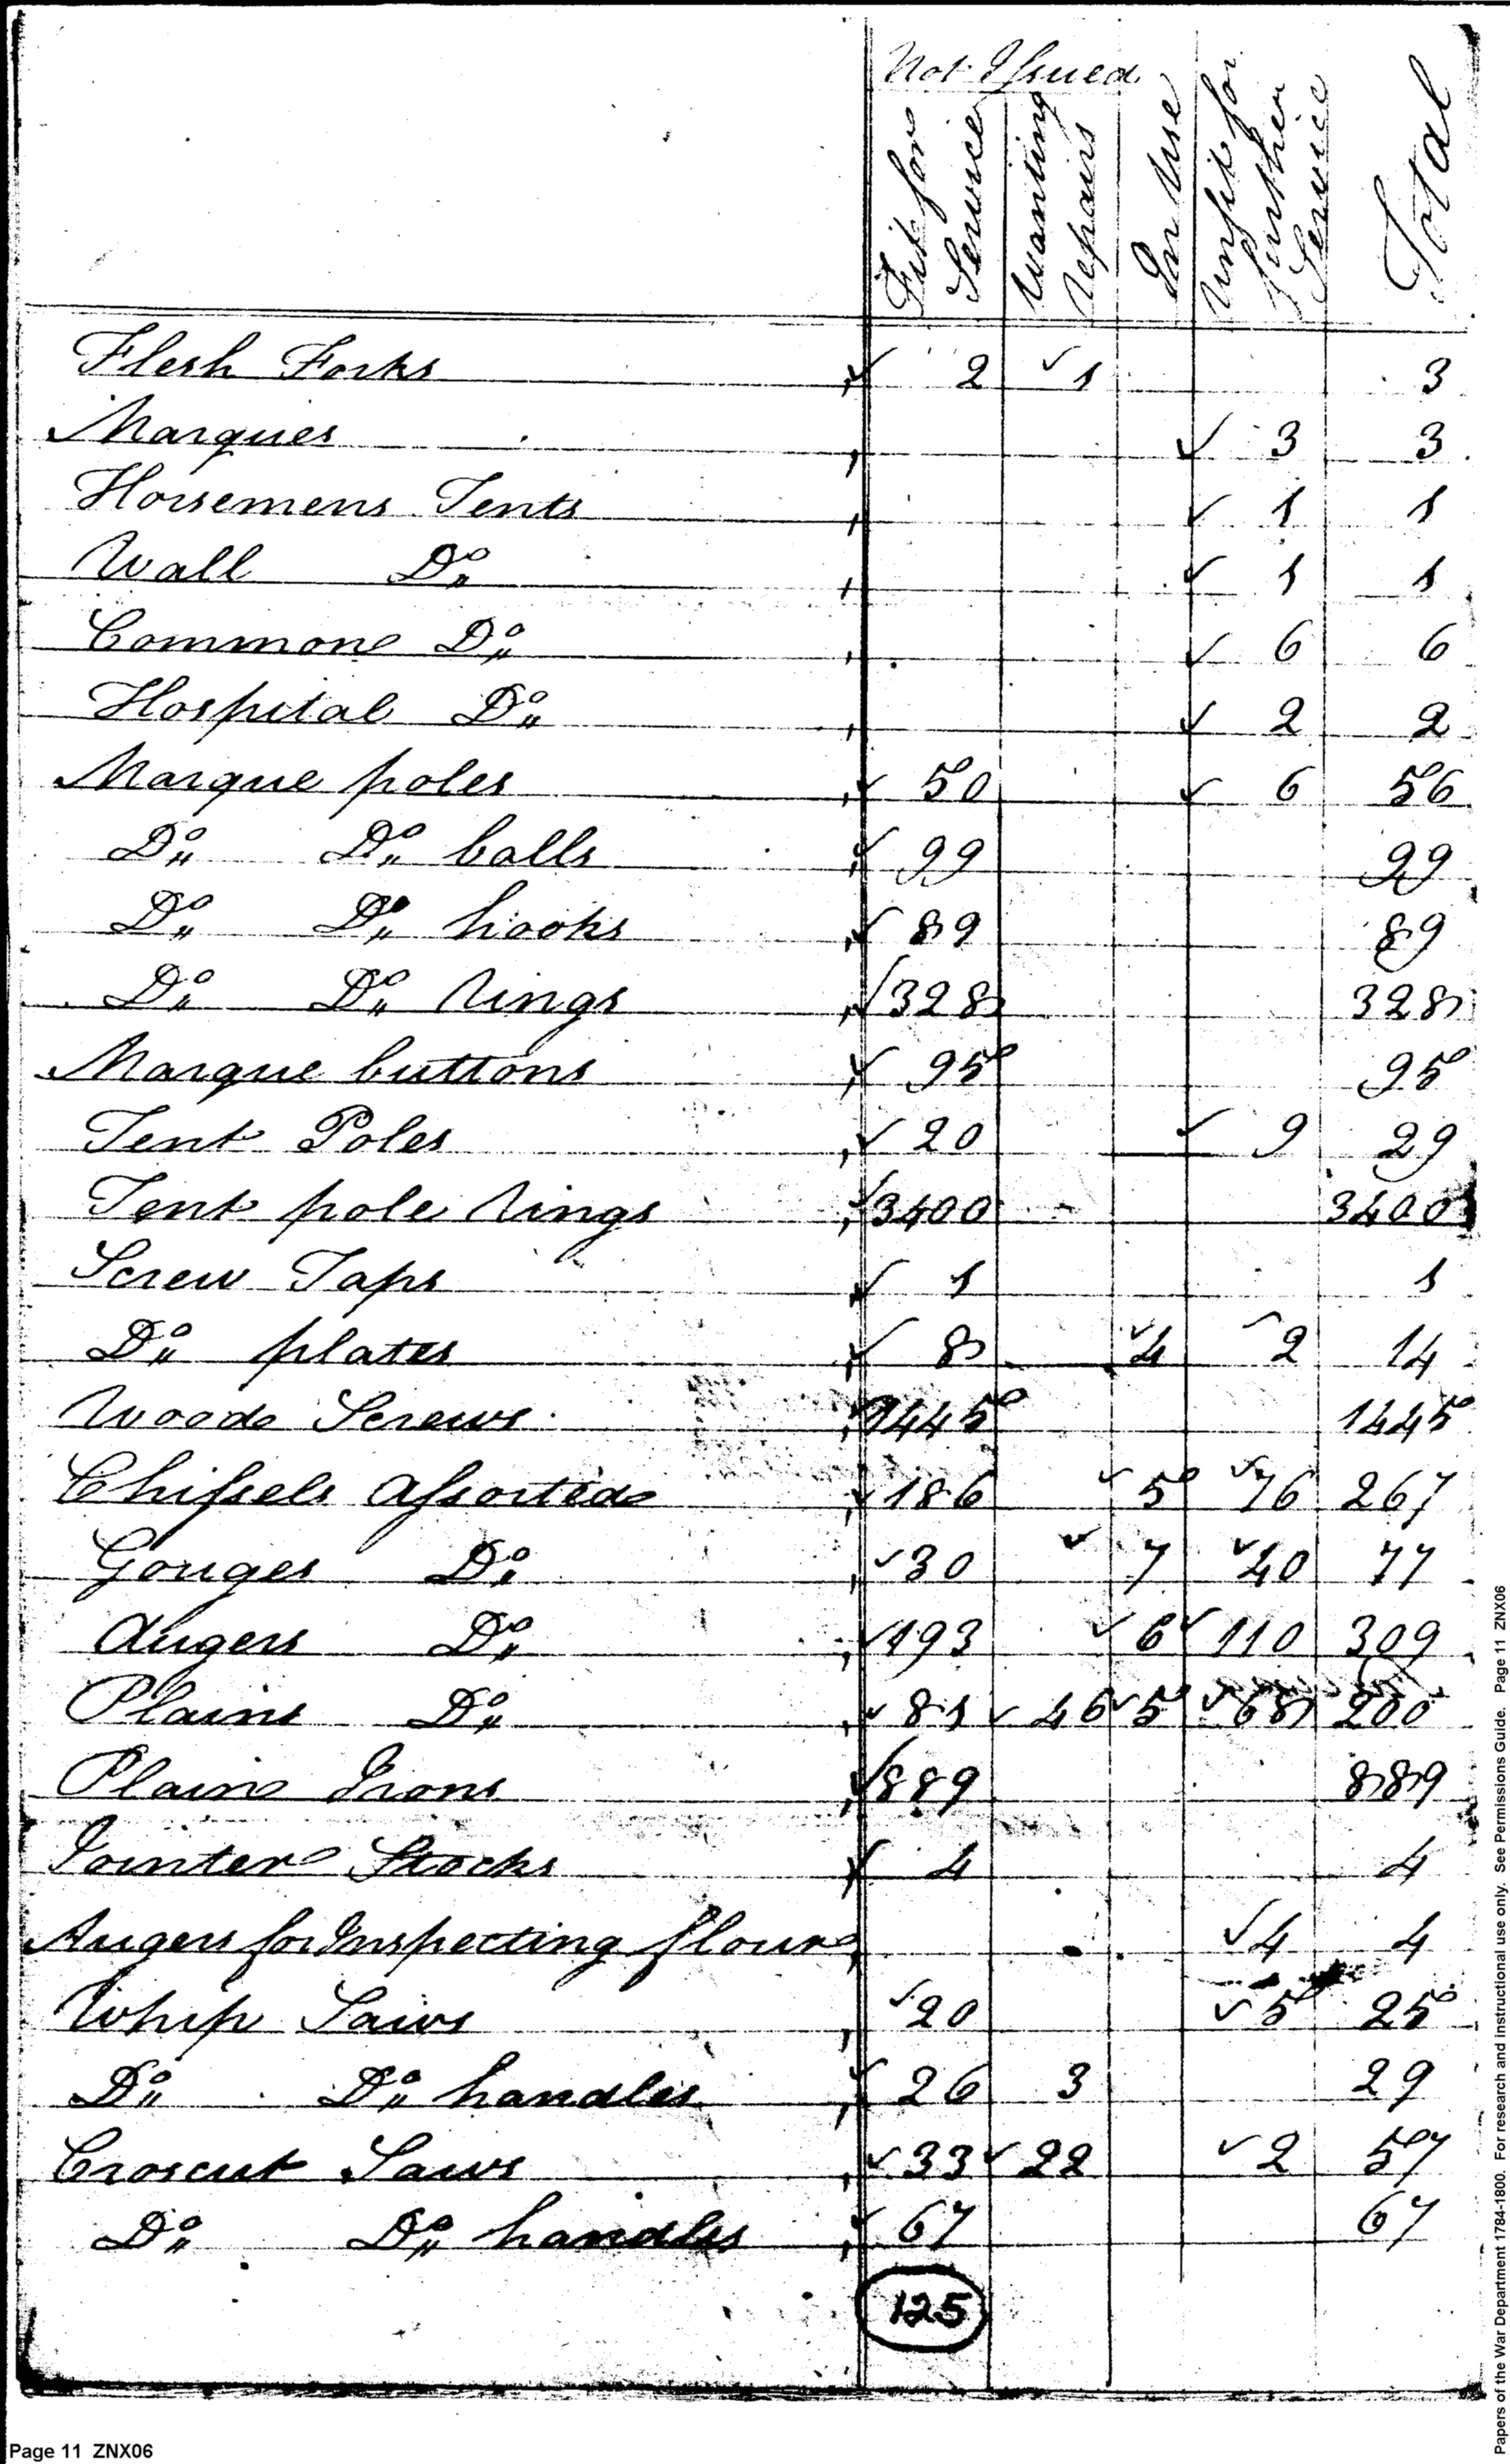 Not Issued
Fit for Service
Wanting repairs
In Use
Unfit for further Service
Total
Flesh Forks ✓ 2 ✓ 1 3
Marques ✓ 3 3
Horsemens Tents ✓ 1 1
Wall Do ✓ 1 1
Common Do ✓ 6 6
Hospital Do ✓ 2 2
Marque poles ✓ 50 ✓ 6 56
Do Do balls ✓ 99 99
Do Do hooks ✓ 89 89
Do Do rings ✓ 328 328
Marque buttons ✓ 95 95
Tent Poles ✓ 20 ✓ 9 29
Tent pole rings ✓ 3400 3400
Screw Taps ✓ 1 1
Do plates ✓ 8 ✓ 4 ✓ 2 14
Wood Screws ✓ 1445 1445
Chissels Assorted ✓ 186 ✓ 5 ✓ 76 267
Gouges Do ✓ 30 ✓ 7 ✓ 40 77
Augers Do ✓ 193 ✓ 6 ✓ 110 309
Plains Do ✓ 81 ✓ 46 ✓ 5 ✓ 68 200
Plain Irons ✓ 889 889
Jointer Stocks ✓ 4 4
Augers for Inspecting flour ✓ 4 4
Whip Saws ✓ 20 ✓ 5 25
Do Do handles ✓ 26 3 29
Croscut Saws ✓ 33 ✓ 22 ✓ 2 57
Do Do handles ✓ 67 67
125
Page 11 ZNX06
Papers of the War Department 1784-1800. For research and instructional use only. See Permissions Guide. Page 11 ZNX06